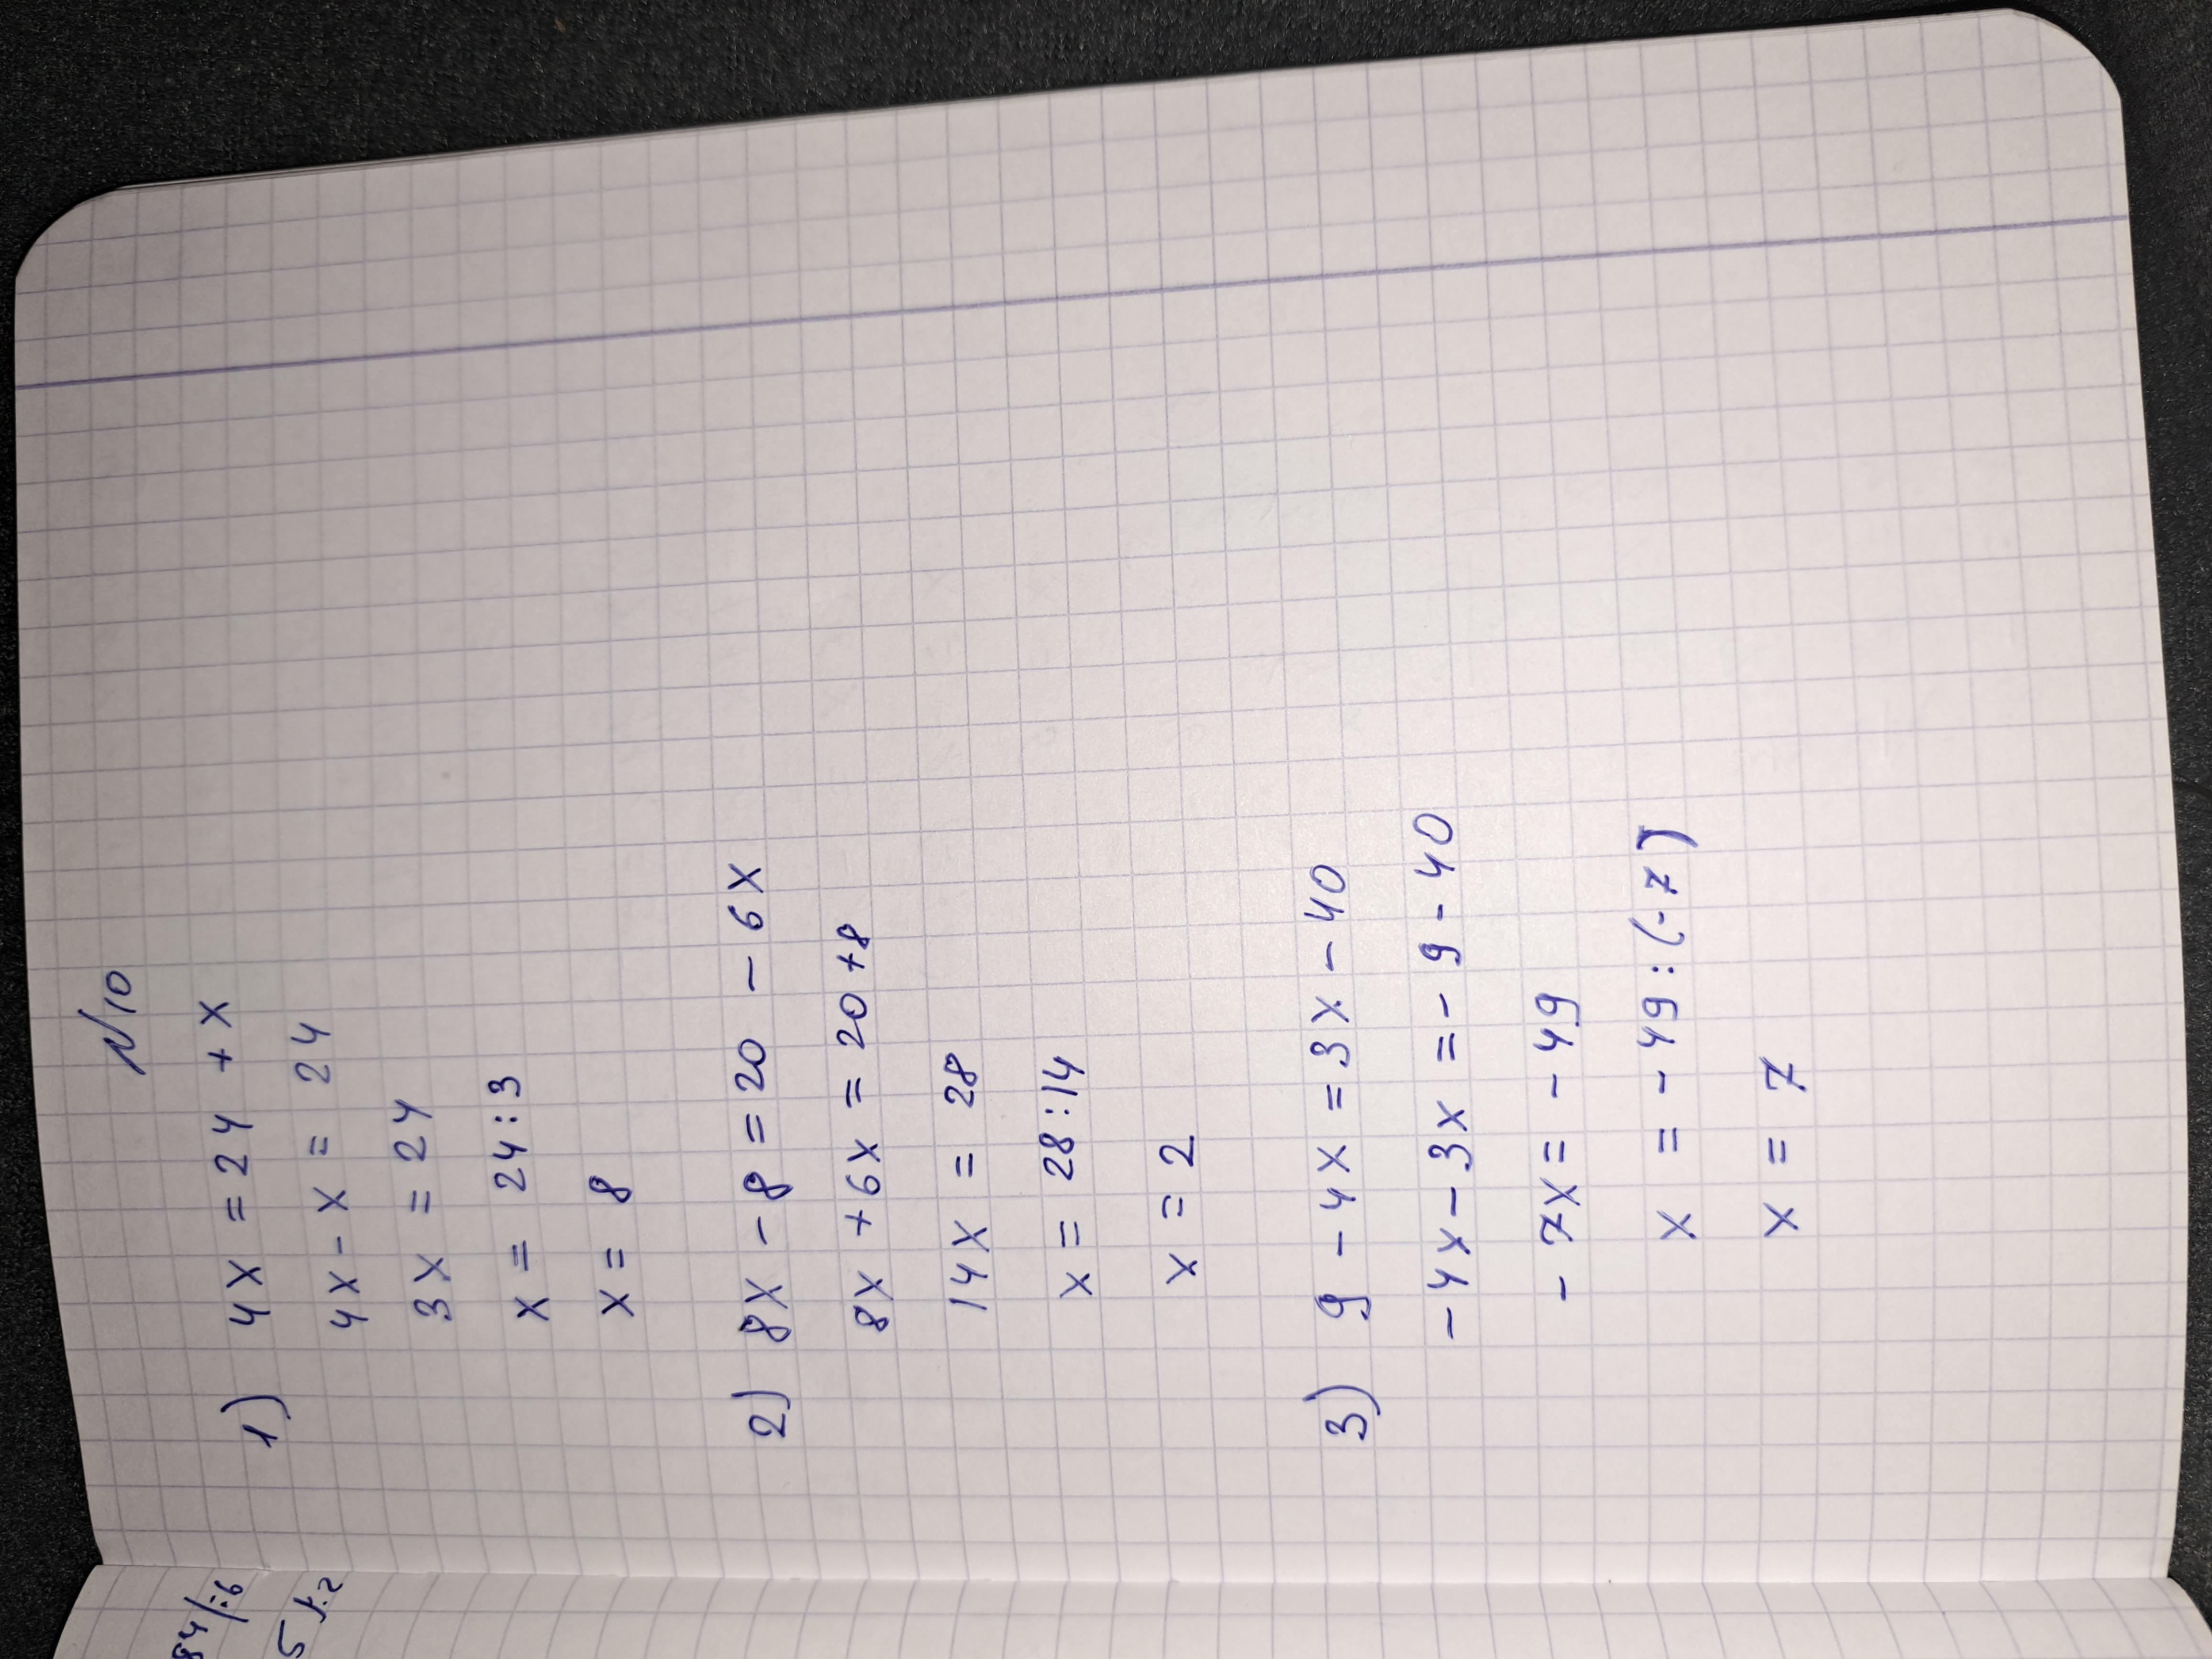 N10
1) 4x = 24 + x
4x - x = 24
3x = 24
x = 24 : 3
x = 8
2) 8x - 8 = 20 - 6x
8x + 6x = 20 + 8
14x = 28
x = 28 : 14
x = 2
3) 9 - 4x = 3x - 40
-4x - 3x = - 9 - 40
- 7x = - 49
x = - 49 : (-7)
x = 7
84/:6
5 /:2